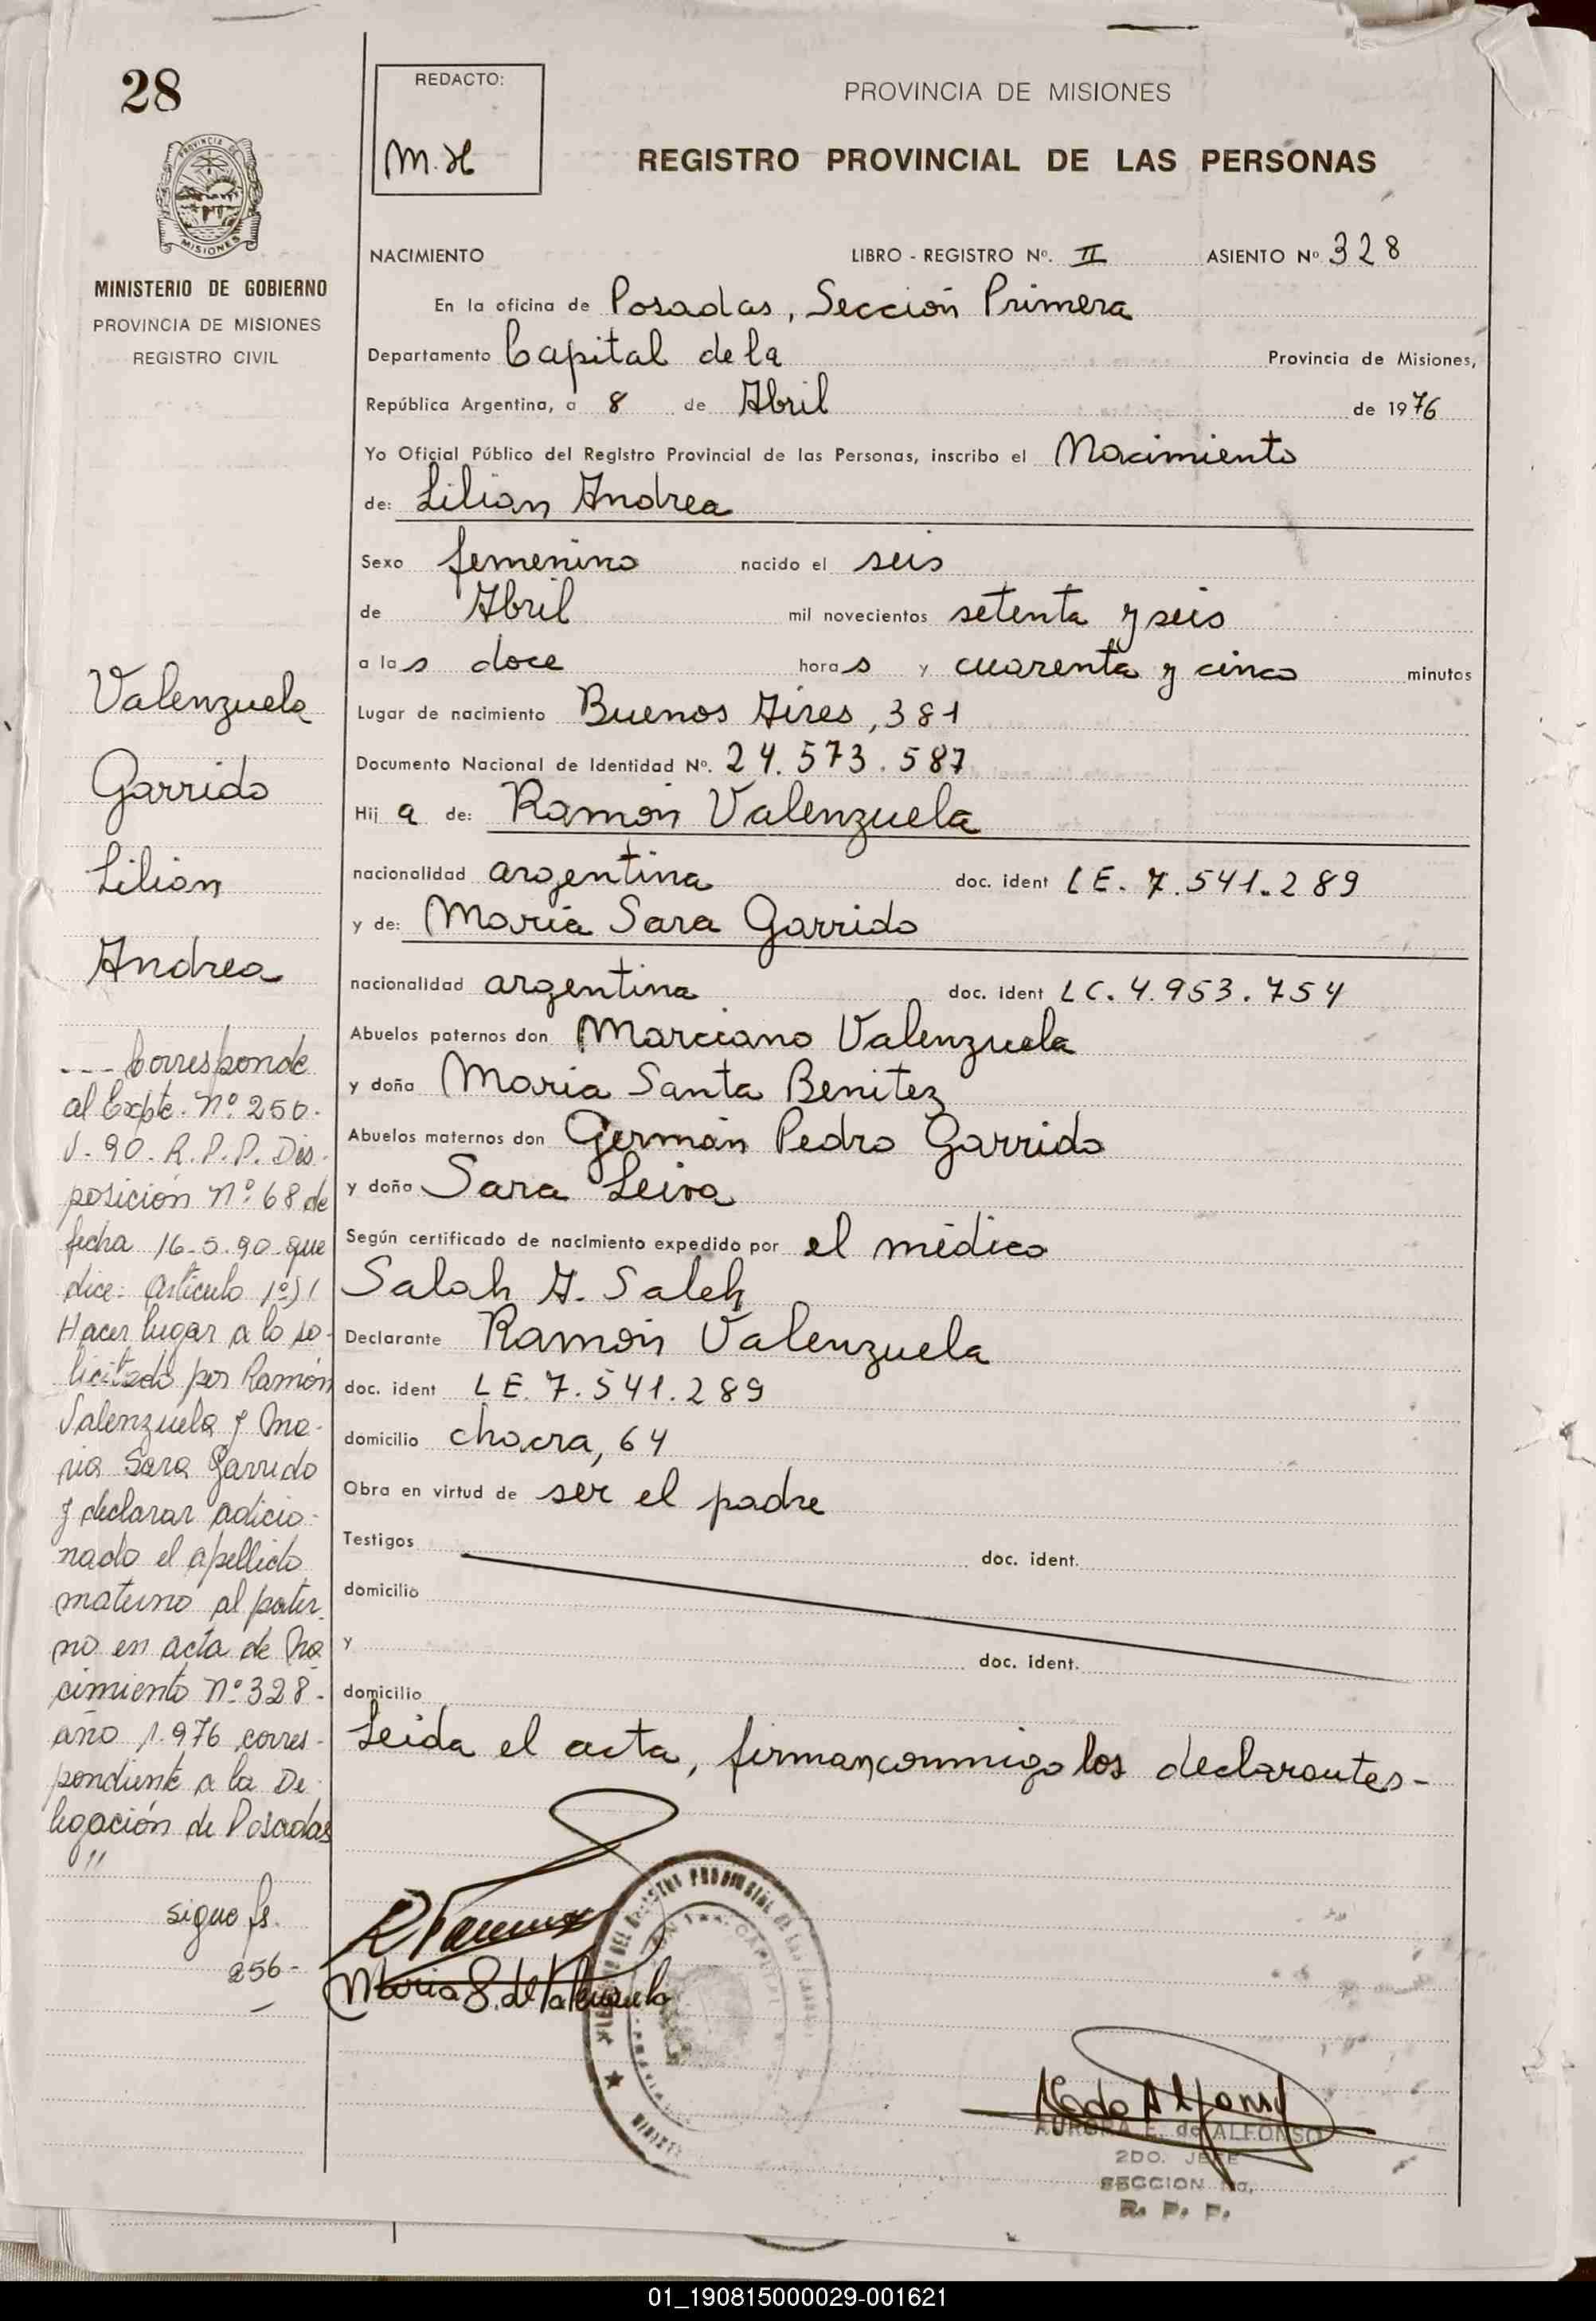 28
PROVINCIA DE
MISIONES
MINISTERIO DE GOBIERNO
PROVINCIA DE MISIONES
REGISTRO CIVIL
REDACTO:
M.H
PROVINCIA DE MISIONES
REGISTRO PROVINCIAL DE LAS PERSONAS
NACIMIENTO LIBRO - REGISTRO Nº. II ASIENTO Nº 328
En la oficina de Posadas, Sección Primera
Departamento Capital de la Provincia de Misiones,
República Argentina, a 8 de Abril de 1976
Yo Oficial Público del Registro Provincial de las Personas, inscribo el Nacimiento
de: Lilian Andrea
Sexo femenino nacido el seis
de Abril mil novecientos setenta y seis
a las doce horas y cuarenta y cinco minutos
Lugar de nacimiento Buenos Aires, 381
Documento Nacional de Identidad Nº. 24.573.587
Hija de: Ramón Valenzuela
nacionalidad argentina doc. ident LE. 7.541.289
y de: María Sara Garrido
nacionalidad argentina doc. ident LC. 4.953.754
Abuelos paternos don Marciano Valenzuela
y doña María Santa Benitez
Abuelos maternos don Germán Pedro Garrido
y doña Sara Leiva
Según certificado de nacimiento expedido por el médico
Salah A. Saleh
Declarante Ramón Valenzuela
doc. ident LE. 7.541.289
domicilio chacra, 64
Obra en virtud de ser el padre
Testigos doc. ident.
domicilio
y doc. ident.
domicilio
Leida el acta, firman conmigo los declarantes-
Valenzuela
Garrido
Lilian
Andrea
--- Corresponde
al Expte. Nº 250-
V-90. R.P.P. Dis-
posición Nº 68 de
fecha 16-5-90 que
dice: Artículo 1º)
Hacer lugar a lo so-
licitado por Ramón
Valenzuela y Ma-
ria Sara Garrido
y declarar adicio-
nado el apellido
materno al pater-
no en acta de Na-
cimiento Nº 328-
año 1.976 corres-
pondiente a la De-
legación de Posadas
"
sigue fs.
256-
Maria S. de Valenzuela
AURORA E. de ALFONSO
2DO. JEFE
SECCION 1a.
R. P. P.
01_190815000029-001621